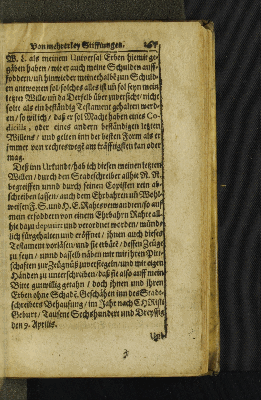 Von mehrerley Stifftungen.
W. L. als meinem Universal Erben hiemit ge-
gäben haben / wie er auch meine Schulden auff-
foddern / uñ hinwieder meinethalbē zun Schuld-
en antworten sol / solches alles ist uñ sol seyn mein
letzter Wille / uñ da Derselb über zuversicht / nicht
solte als ein beständig Testament gehalten werd-
en / so wil ich / daß er sol Macht haben eines Co-
dicills, oder eines andern beständigen letzten
Willens / und gelten inn der besten Form als es
immer von rechtswegē am kräfftigsten kan oder
mag.
Deß inn Urkunde / hab ich diesen meinen letztē
Willen / durch den Stadtschreiber allhie N. N.
begreiffen unnd durch seinen Copisten rein ab-
schreiben lassen / auch dem Ehrbaren uñ Wohl-
weisen F. S. und H. E. Rahtsverwandten / so auff
mein erfoddern von einem Ehrbahrn Rahte all-
hie dazu deputirt und verordnet worden / münd-
lich fürgehalten und eröffnet / ihnen auch dieses
Testament vorläsen / und sie erbäten / dessen Zeuge
zu seyn / unnd dasselb näben mir mit ihren Pit-
schaften zur Zeugnüß zuversiegeln / und mit eigen
Händen zu unterschreiben / daß sie also auff meine
Bitte gutwillig getahn / doch ihnen und ihren
Erben ohne Schadē. Geschähen inn des Stadt-
schreibers Behausung / im Jahr nach CHRisti
Geburt / Tausent Sechshundert und Dreyssig
den 9. Aprilis.